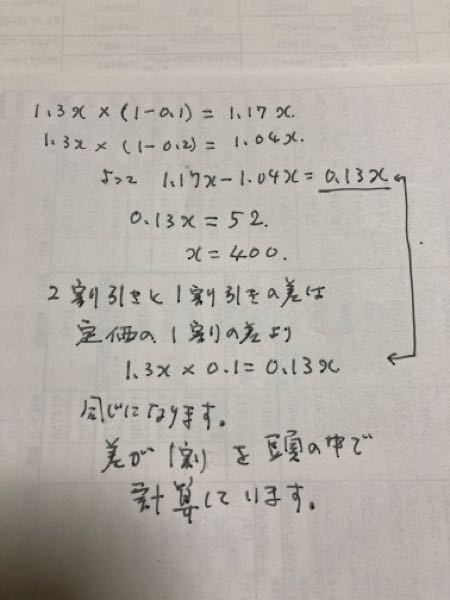 1.3x × (1-0.1) = 1.17x.
1.3x × (1-0.2) = 1.04x.
よって 1.17x-1.04x = 0.13x
0.13x = 52.
x = 400.
2割引きと1割引きの差は
定価の1割の差より
1.3x × 0.1 = 0.13x
同じになります。
差が1割を頭の中で
計算しています。